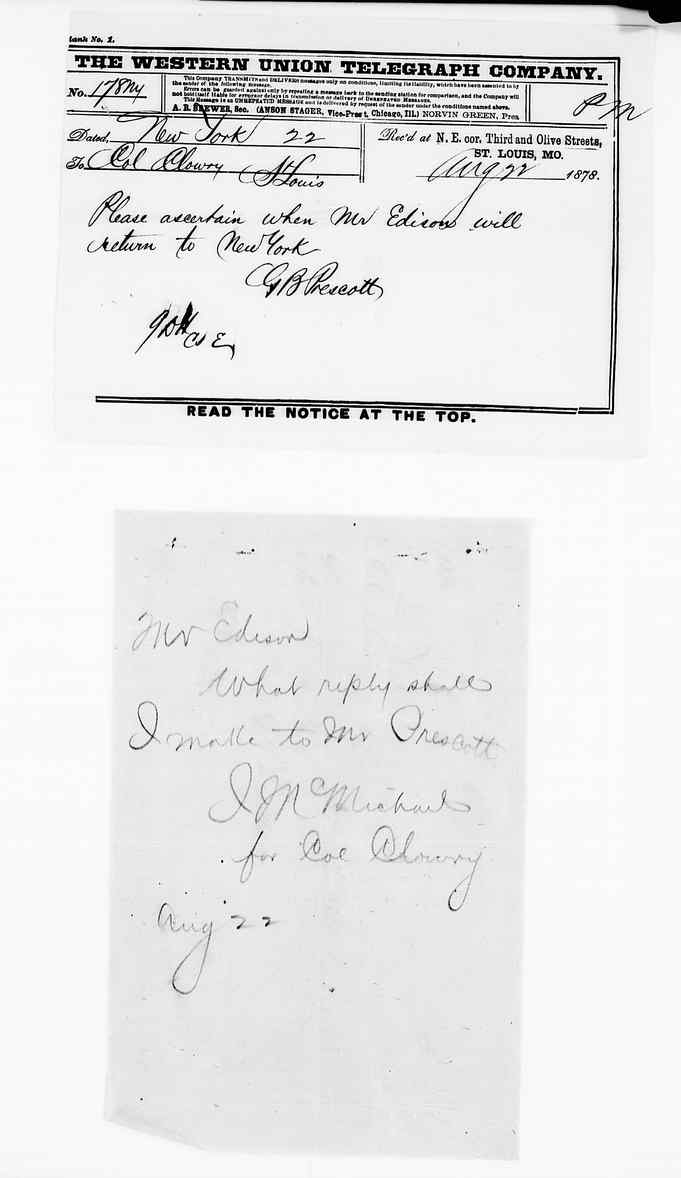 Blank No. 1.
THE WESTERN UNION TELEGRAPH COMPANY.
This Company TRANSMITS and DELIVERS messages only on conditions, limiting its liability, which have been assented to by
the sender of the following message.
Errors can be guarded against only by repeating a message back to the sending station for comparison, and the Company will
not hold itself liable for errors or delays in transmission or delivery of UNREPEATED MESSAGES.
This Message is an UNREPEATED MESSAGE and is delivered by request of the sender under the conditions named above.
A. R. BREWER, Sec. (ANSON STAGER, Vice-Pres't, Chicago, Ill.) NORVIN GREEN, Pres
No. 178 Ny
PM
Dated, New York 22
Rec'd at N. E. cor. Third and Olive Streets,
ST. LOUIS, MO.
Aug 22 1878.
To Col Clowry St Louis
Please ascertain when Mr Edison will
return to New York
G B Prescott
READ THE NOTICE AT THE TOP.
Mr Edison
What reply shall
I make to Mr Prescott
J McMichael
for Col Clowry
Aug 22